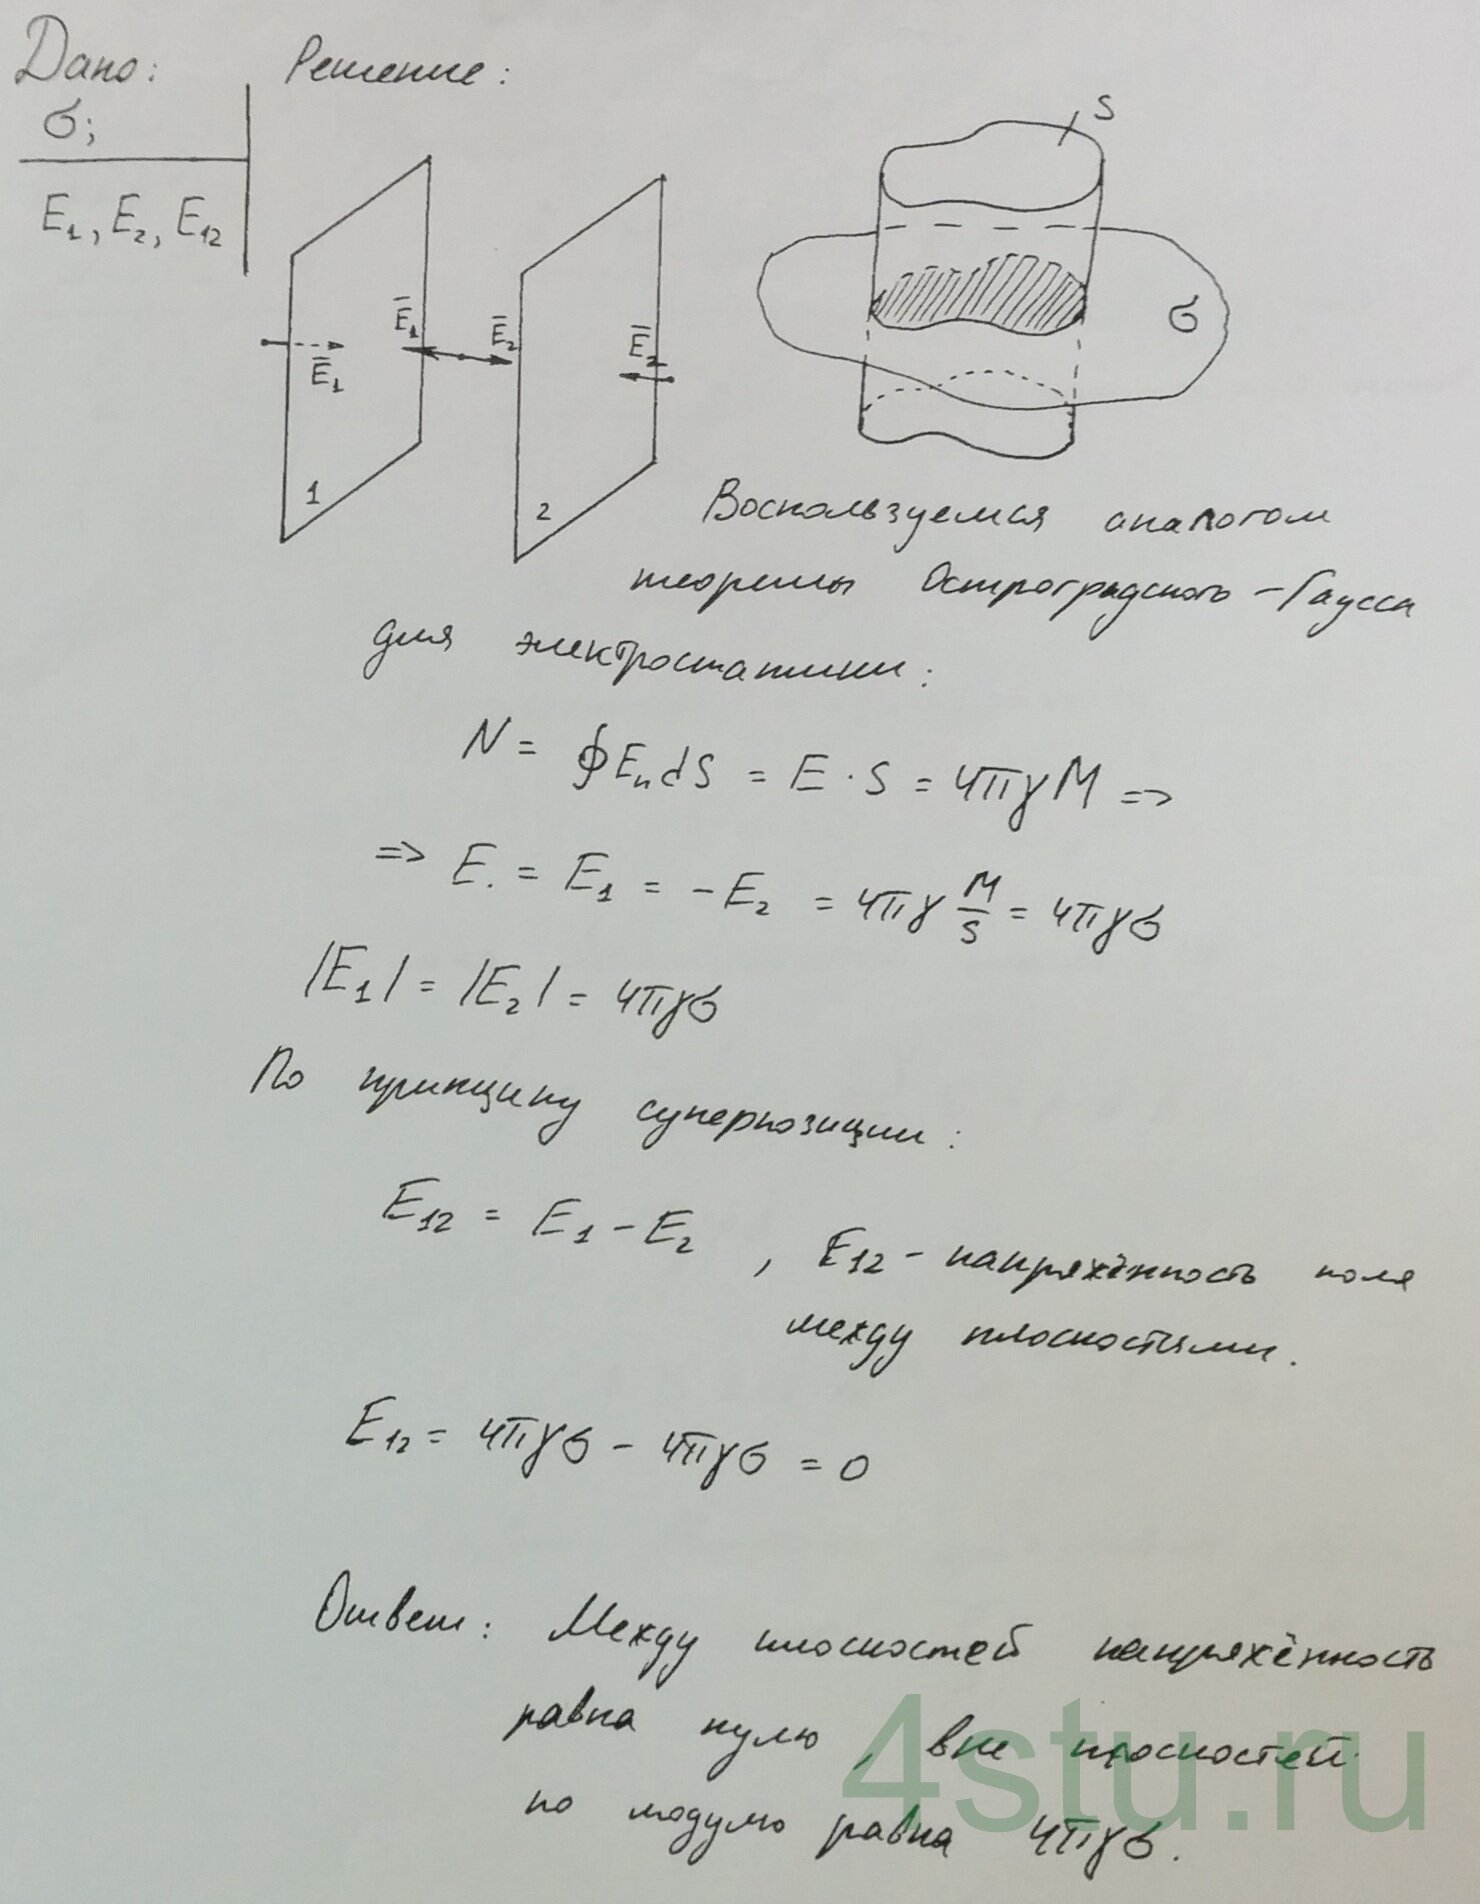 Дано: Решение:
σ;
E₁, E₂, E₁₂
S
σ
E̅₁
E̅₁ E̅₂
E̅₂
1
2
Воспользуемся аналогом
теоремы Остроградского-Гаусса
для электростатики:
N = ∮EₙdS = E · S = 4πγM =>
=> E = E₁ = -E₂ = 4πγ M/S = 4πγσ
|E₁| = |E₂| = 4πγσ
По принципу суперпозиции:
E₁₂ = E₁ - E₂ , E₁₂ - напряжённость поля
между плоскостями.
E₁₂ = 4πγσ - 4πγσ = 0
Ответ: Между плоскостей напряжённость
равна нулю, вне плоскостей
по модулю равна 4πγσ.
4stu.ru